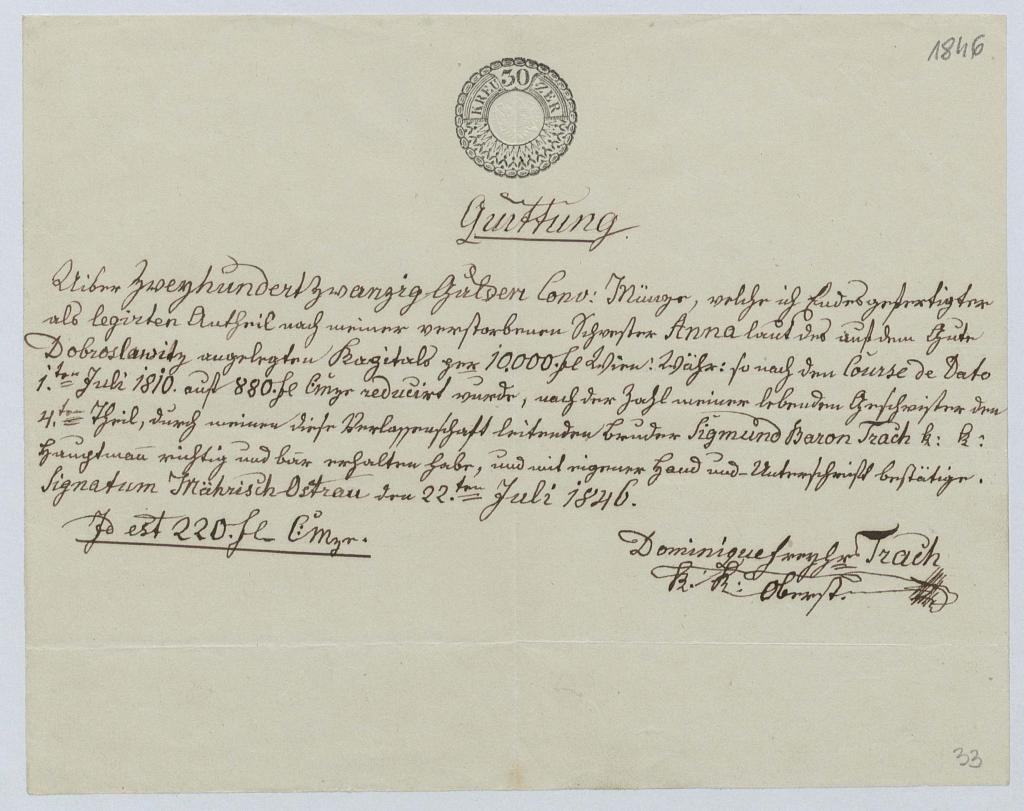 1846
30
KREUZER
Quittung.
Uiber Zweyhundert zwanzig Gulden Conv: Münze, welche ich Endesgefertigter
als legirten Antheil nach meiner verstorbenen Schwester Anna laut des auf dem Gute
Dobroslawitz angelegten Kapitals per 10,000. fl Wien: Währ: so nach den Course de Dato
1.ten Juli 1810. auf 880. fl CMze reducirt wurde, nach der Zahl meiner lebenden Geschwister den
4.ten Theil, durch meinen diese Verlassenschaft leitenden Bruder Sigmund Baron Trach k: k:
Hauptmañ richtig und bar erhalten habe, und mit eigener Hand und Unterschrift bestätige.
Signatum Mährisch Ostrau den 22.ten Juli 1846.
Id est 220. fl CMze.
Dominique Freyhr Trach
k: k: Oberst.
33